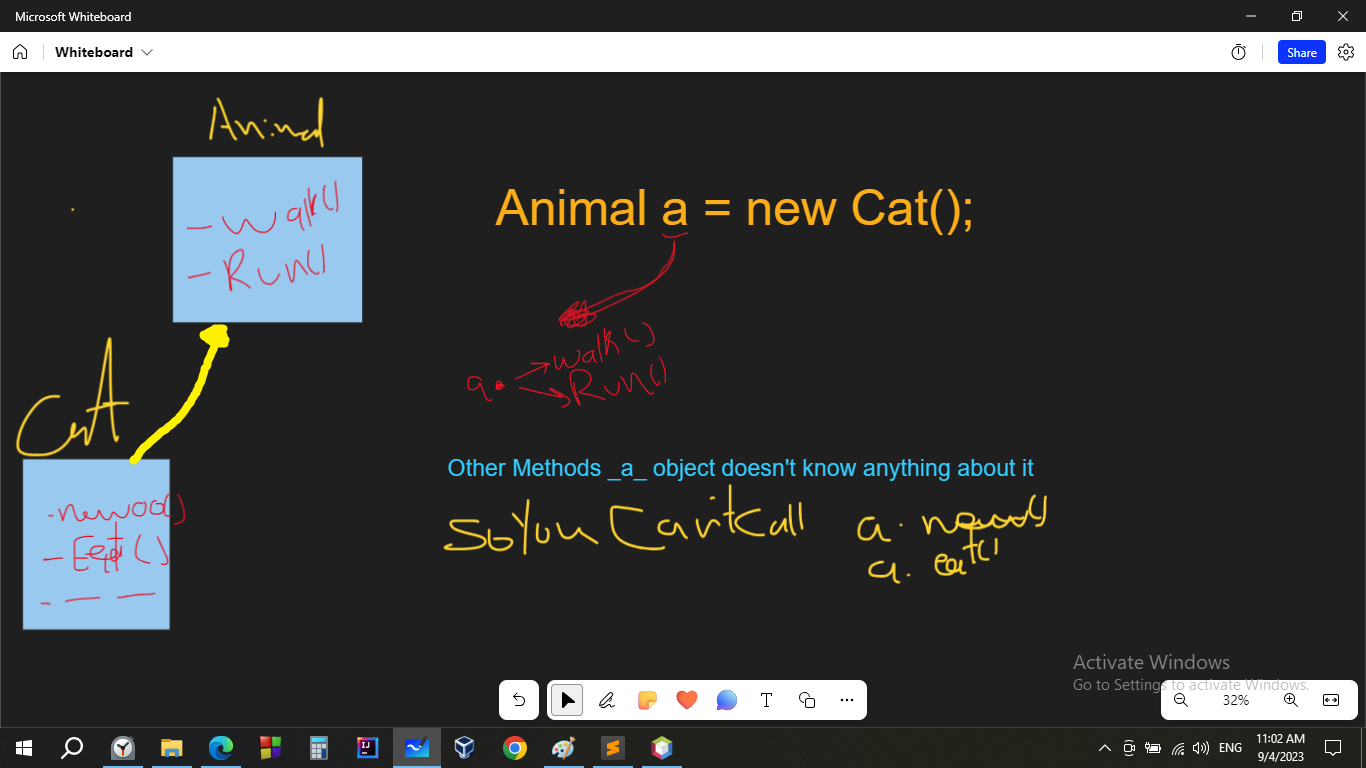 Microsoft Whiteboard
Whiteboard
Share
Animal
- Walk()
- Run()
Animal a = new Cat();
a. walk()
Run()
Cat
- Eat()
Other Methods _a_ object doesn't know anything about it
So You Can't Call
a.
a. eat()
Activate Windows
Go to Settings to activate Windows.
32%
ENG
11:02 AM
9/4/2023